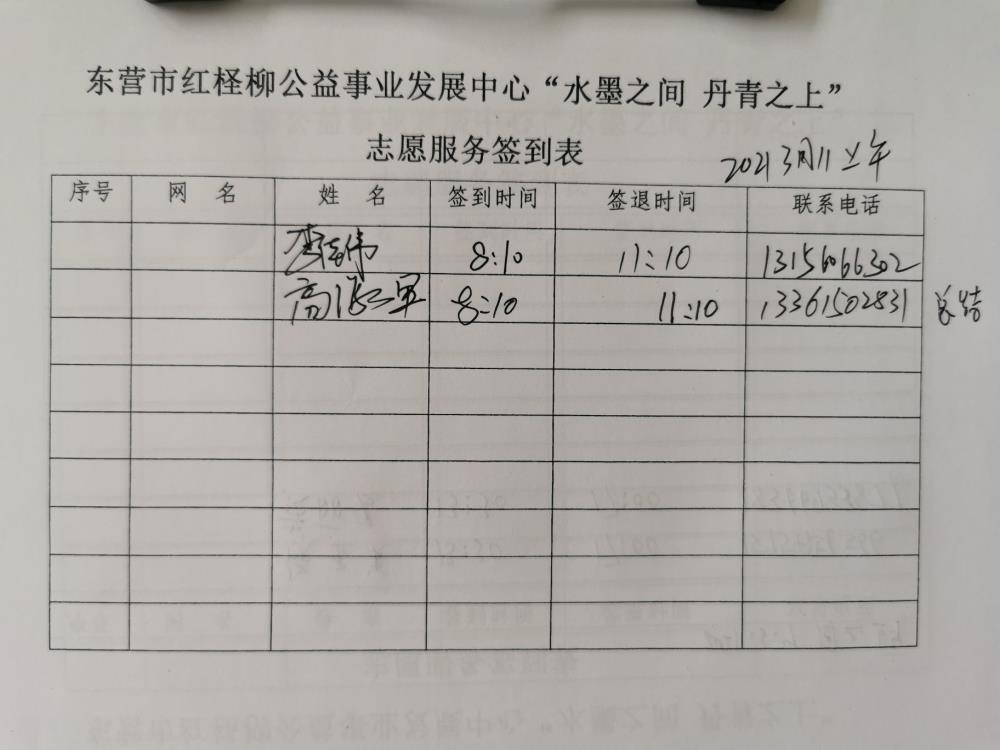 东营市红柽柳公益事业发展中心“水墨之间 丹青之上”
志愿服务签到表
2021 3月11 上午
序号 网 名 姓 名 签到时间 签退时间 联系电话
8:10 11:10 13156066302
高 军 8:10 11:10 13361502831 总结